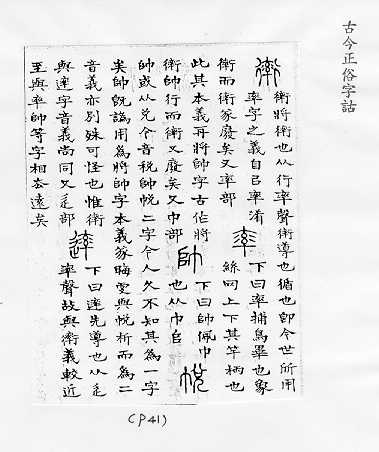 古今正俗字詁
𧗿 𧗿將𧗿也从行率聲𧗿導也循也即今世所用
率字之義自㠯率淆
𧗿而𧗿篆廢矣又率部
率 下曰率捕鳥畢也象
絲网上下其竿柄也
此其本義再將帥字古作將
𧗿帥行而𧗿又廢矣又巾部
帥 下曰帥佩巾
也从巾𠂤
帨
帥或从兌今音稅帥帨二字今人久不知其為一字
矣帥既譌用為將帥字本義篆晦爰與帨析而為二
音義亦別殊可怪也惟𧗿
與䢦字音義尚同又辵部
䢦 下曰䢦先導也从辵
率聲故與𧗿義較近
至與率帥等字相去遠矣
(P41)